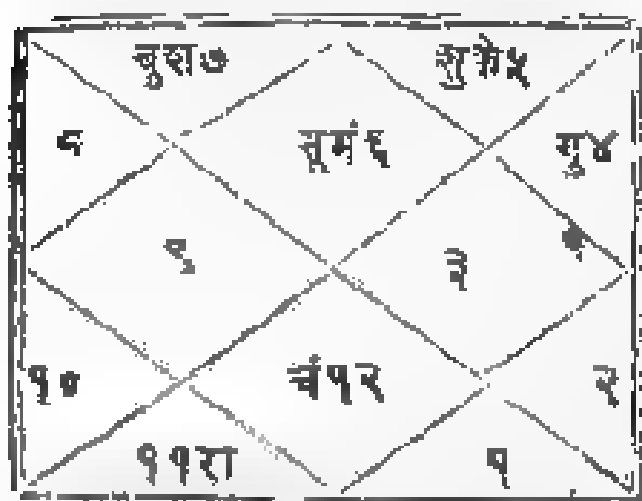 बुश७ शुके५
८ सूमं६ गु४
९ ३
१० चं१२ २
११रा १